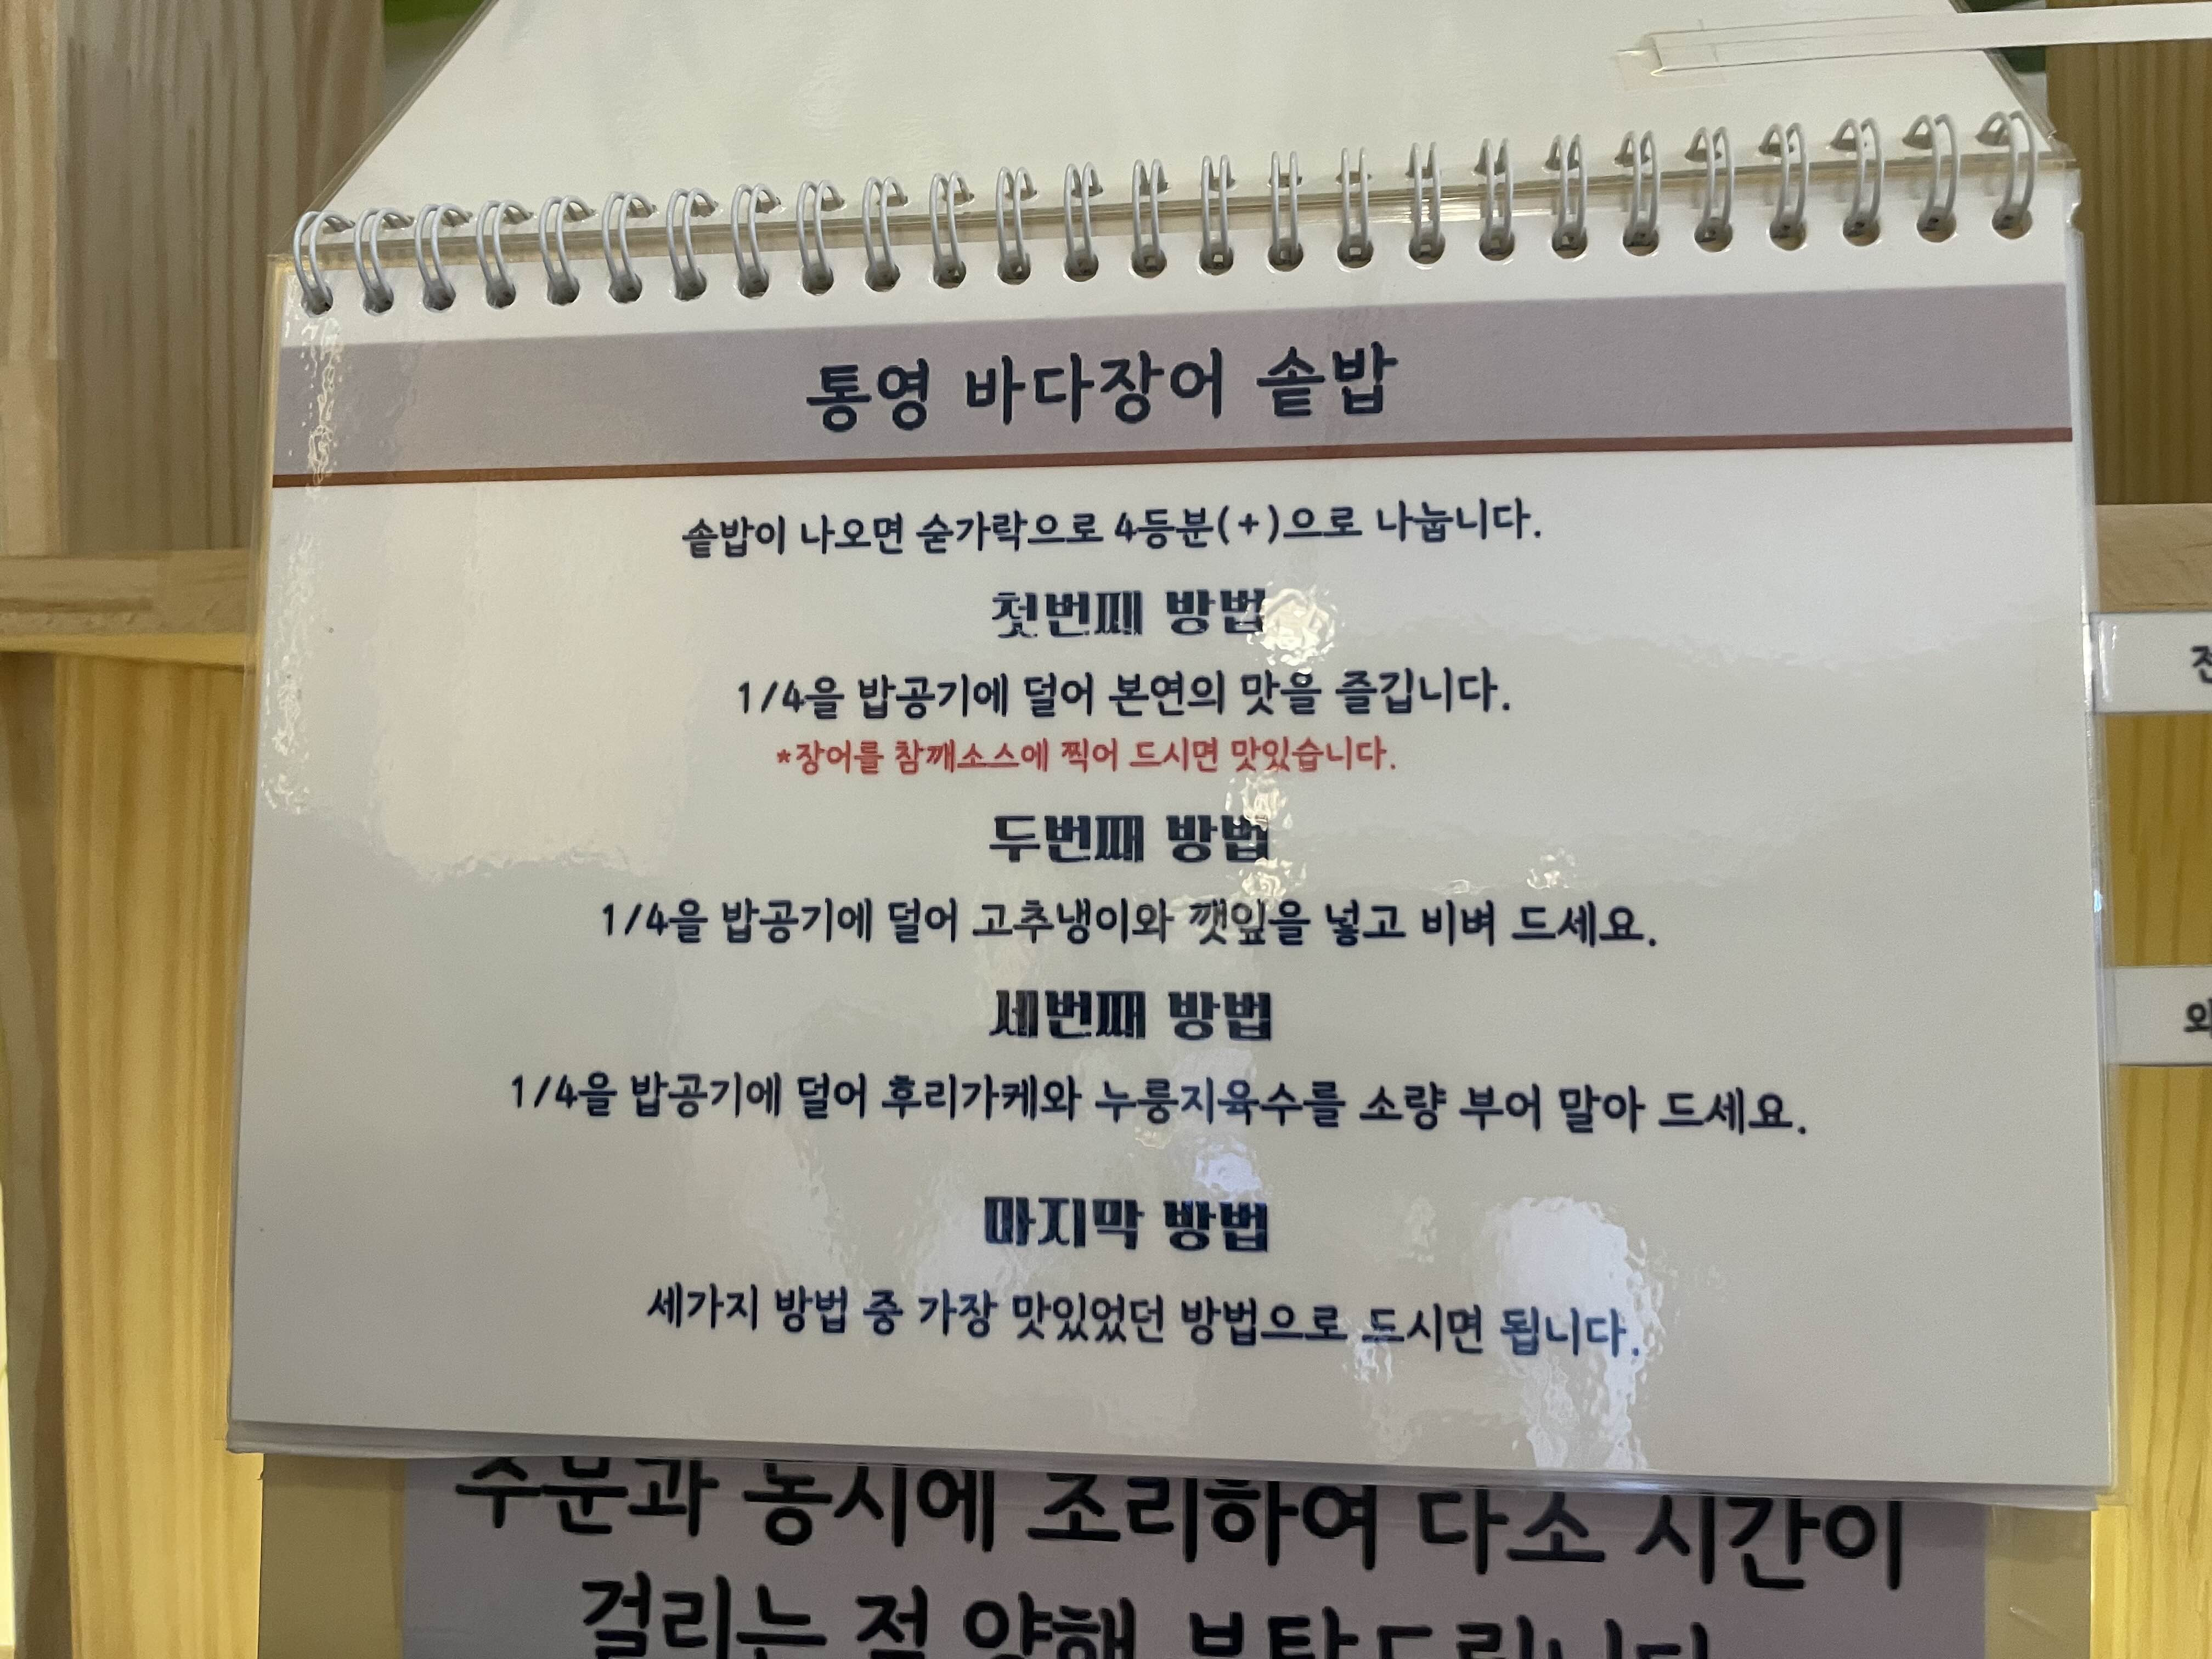 통영 바다장어 솥밥
솥밥이 나오면 숟가락으로 4등분(+)으로 나눕니다.
첫번째 방법
1/4을 밥공기에 덜어 본연의 맛을 즐깁니다.
*장어를 참깨소스에 찍어 드시면 맛있습니다.
두번째 방법
1/4을 밥공기에 덜어 고추냉이와 깻잎을 넣고 비벼 드세요.
세번째 방법
1/4을 밥공기에 덜어 후리가케와 누룽지육수를 소량 부어 말아 드세요.
마지막 방법
세가지 방법 중 가장 맛있었던 방법으로 드시면 됩니다.
주문과 동시에 조리하여 다소 시간이
걸리는 점 양해 부탁드립니다